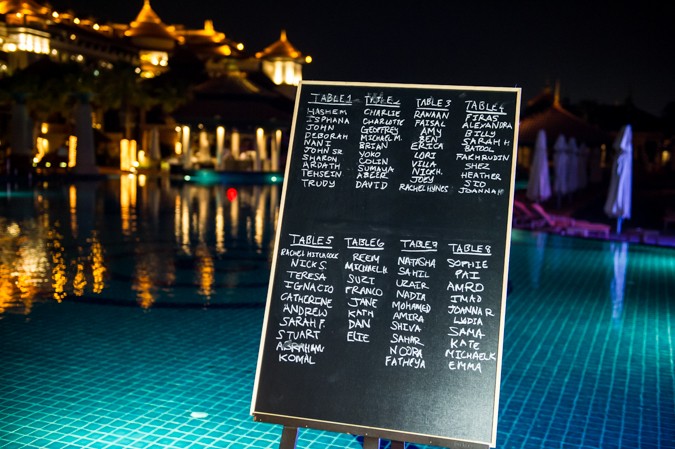 TABLE 1
HASHEM
ISPHANA
JOHN
DEBORAH
NANI
JOHN SR
SHARON
ARDATH
TEHSEIN
TRUDY
TABLE 2
CHARLIE
CHARLOTTE
GEOFFREY
MICHAEL M.
BRIAN
YOKO
COLIN
SUMAYA
DAVID
TABLE 3
RANAAN
FAISAL
AMY
BEN
ERICA
LORI
LILA
NICK
JOEY
RACHEL HYNES
TABLE 4
FIRAS
ALEXANDRA
BILLY
SARAH H
BATOOL
FAKHRUDIN
SHEZ
HEATHER
SID
JOANNAH
TABLE 5
RACHEL HITCHCOCK
NICK S.
TERESA
IGNACIO
CATHERINE
ANDREW
SARAH F.
STUART
ABRAHAM
KOMAL
TABLE 6
REEM
MICHAEL H.
SUZI
FRANCO
JANE
KATH
DAN
ELIE
NATASHA
SAHIL
UZAIR
NADIA
MOHAMED
AMIRA
SHIVA
SAHAR
NOORA
FATHEYA
TABLE 8
SOPHIE
PAI
AMRO
IMAD
JOANNA R
LYDIA
SAMA
KATE
MICHAELK
EMMA